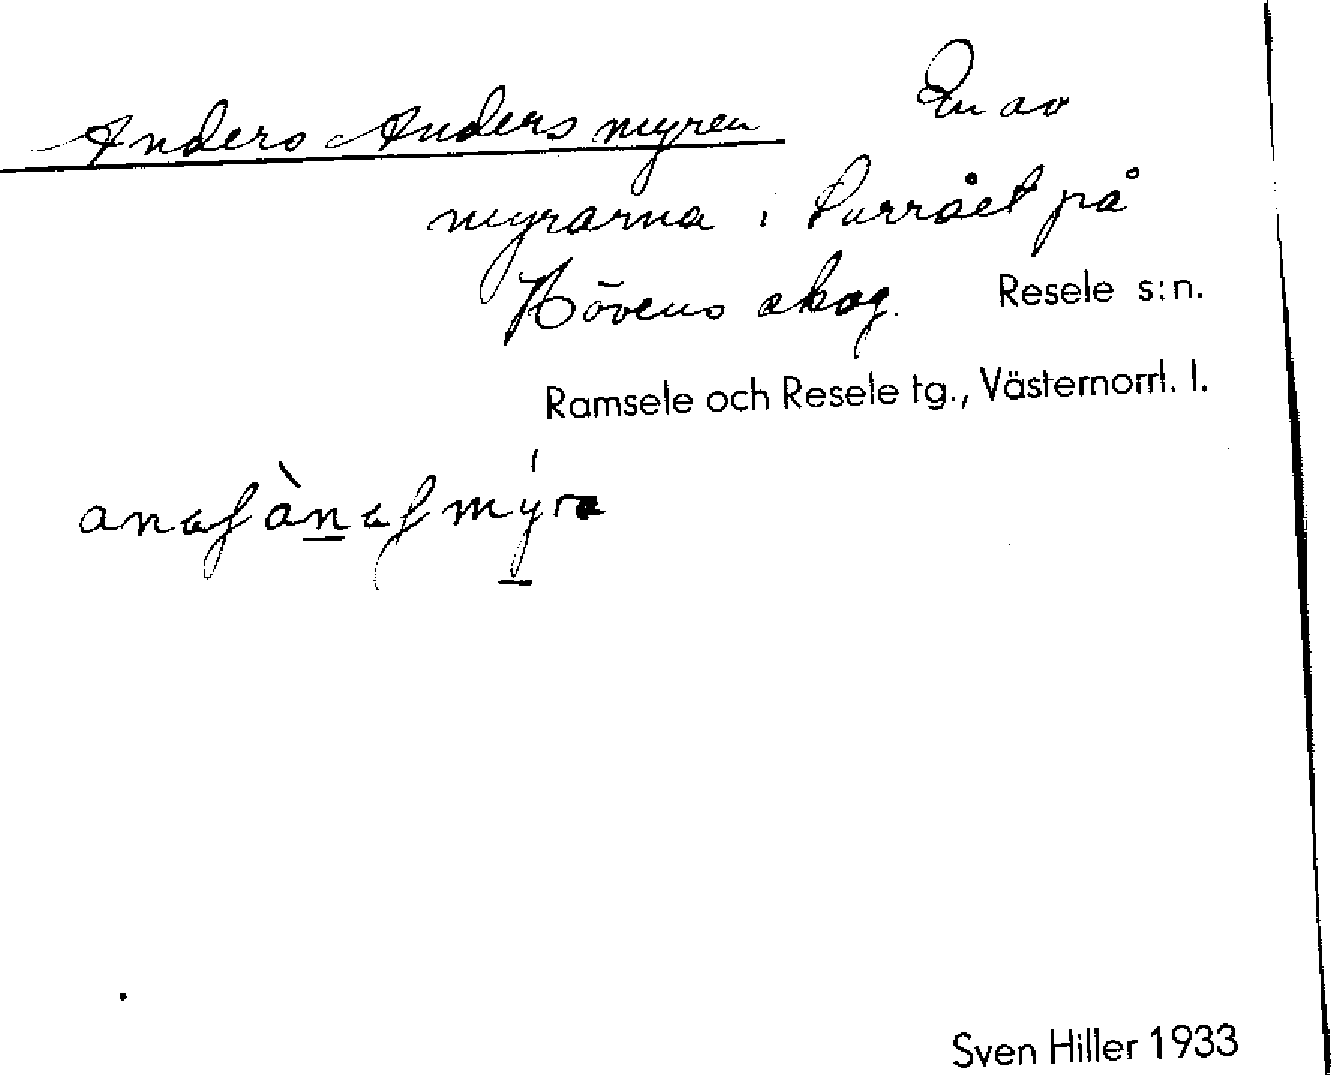 Anders Anders myren En av
myrarna i Purrået på
Hövens skog. Resele s:n.
Ramsele och Resele tg., Västernorrl. l.
Sven Hiller 1933